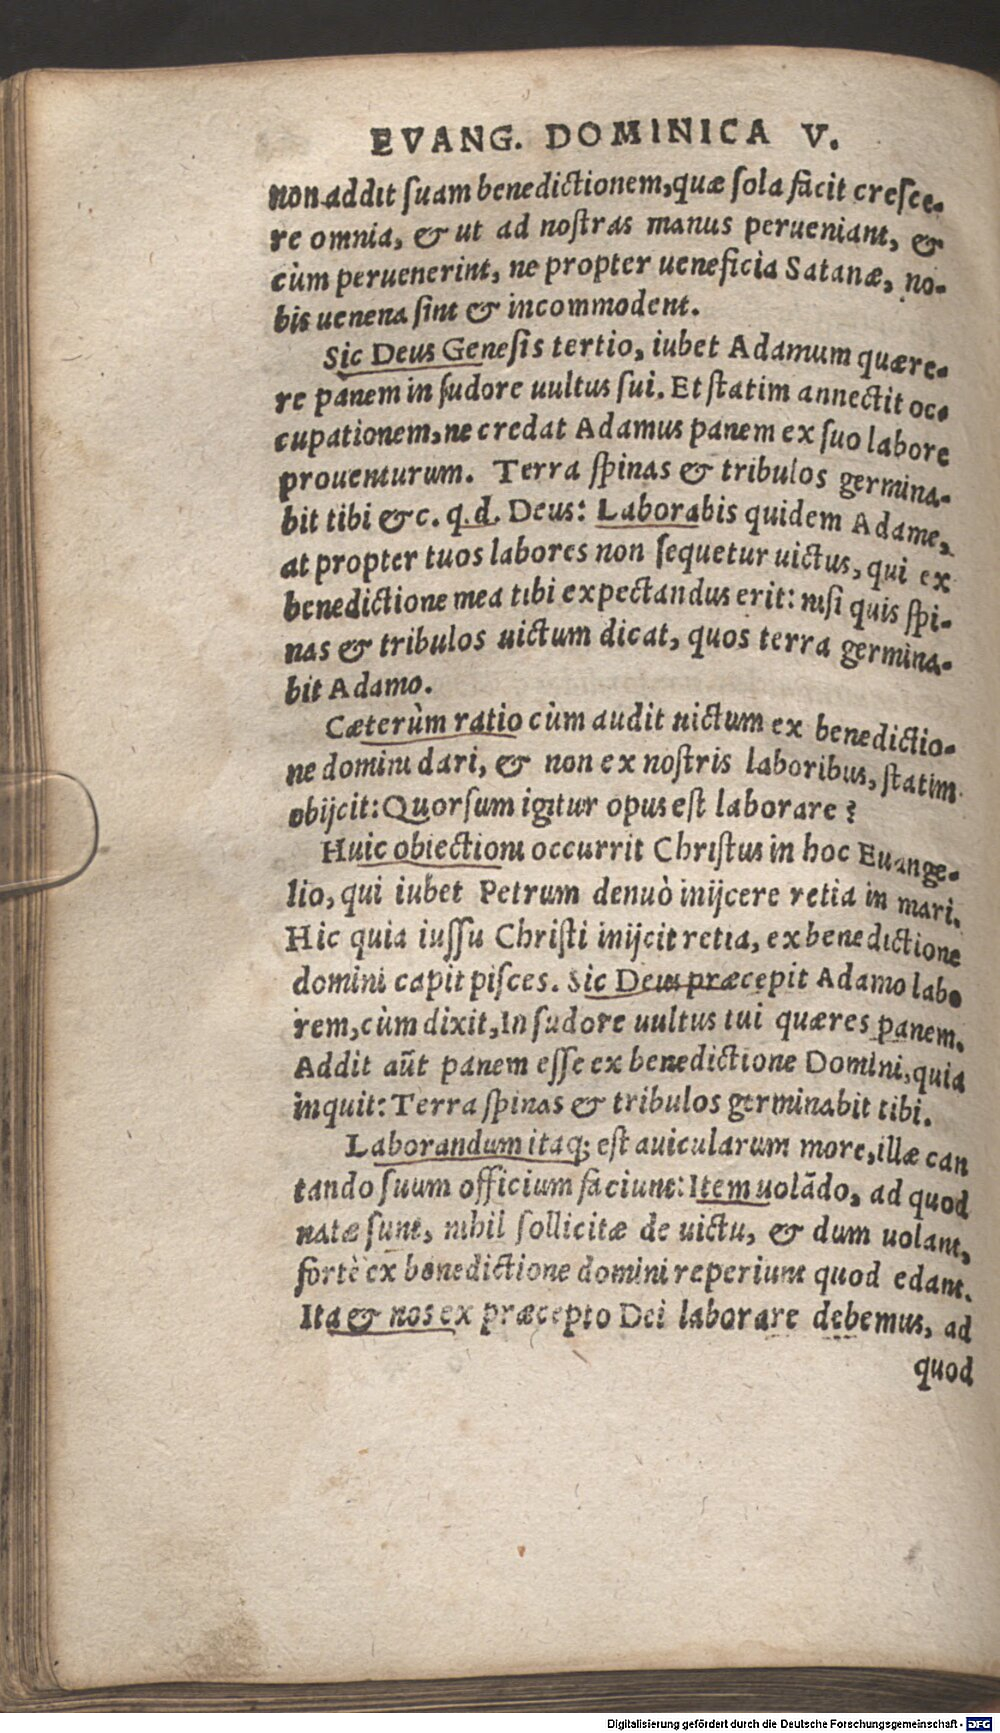 EVANG. DOMINICA V.
non addit suam benedictionem, quæ sola facit cresce-
re omnia, & ut ad nostras manus perueniant, &
cùm peruenerint, ne propter ueneficia Satanæ, no-
bis uenena sint & incommodent.
Sic Deus Genesis tertio, iubet Adamum quære-
re panem in sudore uultus sui. Et statim annectit oc-
cupationem, ne credat Adamus panem ex suo labore
prouenturum. Terra spinas & tribulos germina-
bit tibi &c. q.d. Deus: Laborabis quidem Adame,
at propter tuos labores non sequetur uictus, qui ex
benedictione mea tibi expectandus erit: nisi quis spi-
nas & tribulos uictum dicat, quos terra germina-
bit Adamo.
Cæterùm ratio cùm audit uictum ex benedictio-
ne domini dari, & non ex nostris laboribus, statim
obijcit: Quorsum igitur opus est laborare?
Huic obiectioni occurrit Christus in hoc Euange-
lio, qui iubet Petrum denuò inijcere retia in mari.
Hic quia iussu Christi inijcit retia, ex benedictione
domini capit pisces. Sic Deus præcepit Adamo labo
rem, cùm dixit, In sudore uultus tui quæres panem.
Addit aūt panem esse ex benedictione Domini, quia
inquit: Terra spinas & tribulos germinabit tibi.
Laborandum itaq; est auicularum more, illæ can
tando suum officium faciunt: Item uolādo, ad quod
natæ sunt, nihil sollicitæ de uictu, & dum uolant,
fortè ex benedictione domini reperiunt quod edant.
Ita & nos ex præcepto Dei laborare debemus, ad
quod
Digitalisierung gefördert durch die Deutsche Forschungsgemeinschaft - DFG